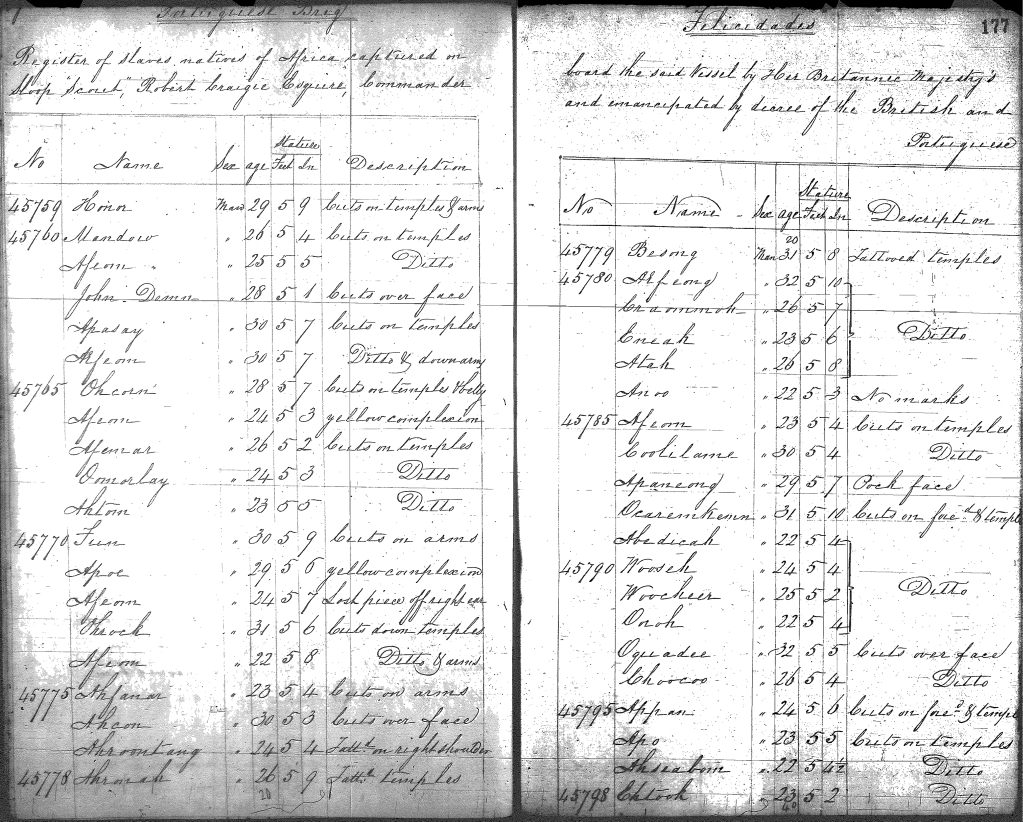 Portuguese Brig
Register of slaves, natives of Africa captured on
Sloop "Scout", Robert Craigie Esquire, Commander
No Name Sex age Stature Feet In Description
45759 Honor Man 29 5 9 Cuts on temples & arms
45760 Mandow " 26 5 4 Cuts on temples
Afeom " 25 5 5 Ditto
John Demn " 28 5 1 Cuts over face
Apasay " 30 5 7 Cuts on temples
Akfeom " 30 5 7 Ditto & down arms
45765 Ohcorn " 28 5 7 Cuts on temples & belly
Afeom " 24 5 3 yellow complexion
Afemar " 26 5 2 Cuts on temples
Oomorlay " 24 5 3 Ditto
Ahtom " 23 5 5 Ditto
45770 Fun " 30 5 9 Cuts on arms
Apoe " 29 5 6 yellow complexion
Afeom " 24 5 7 Lost piece off right ear
Ohrock " 31 5 6 Cuts down temples
Afeom " 22 5 8 Ditto & arms
45775 Ahfanar " 23 5 4 Cuts on arms
Ahcon " 30 5 3 Cuts over face
Ahroontang " 24 5 4 Tattd on right shoulder
45778 Ahrmah " 26 5 9 Tattd temples
20
Felicidades 177
board the said Vessel by Her Britannic Majesty's
and emancipated by decree of the British and
Portuguese
No Name Sex age Stature Feet In Description
20
45779 Besong Man 31 5 8 Tattooed temples
45780 Akfeong " 32 5 10
Craommoh " 26 5 7
Eneah " 23 5 6 Ditto
Atah " 26 5 8
Anoo " 22 5 3 No marks
45785 Afeom " 23 5 4 Cuts on temples
Coolilame " 30 5 4 Ditto
Apaneong " 29 5 7 Pock face
Ocaremkemn " 31 5 10 Cuts on fored & temple
Abedicah " 22 5 4
45790 Wooseh " 24 5 4
Woocheer " 25 5 2 Ditto
Oroh " 22 5 4
Oguadee " 32 5 5 Cuts over face
Choocoo " 26 5 4 Ditto
45795 Appan " 24 5 6 Cuts on fored & temple
Apo " 23 5 5 Cuts on temples
Ahseabom " 22 5 4½ Ditto
45798 Chtooh " 23 5 2 Ditto
40